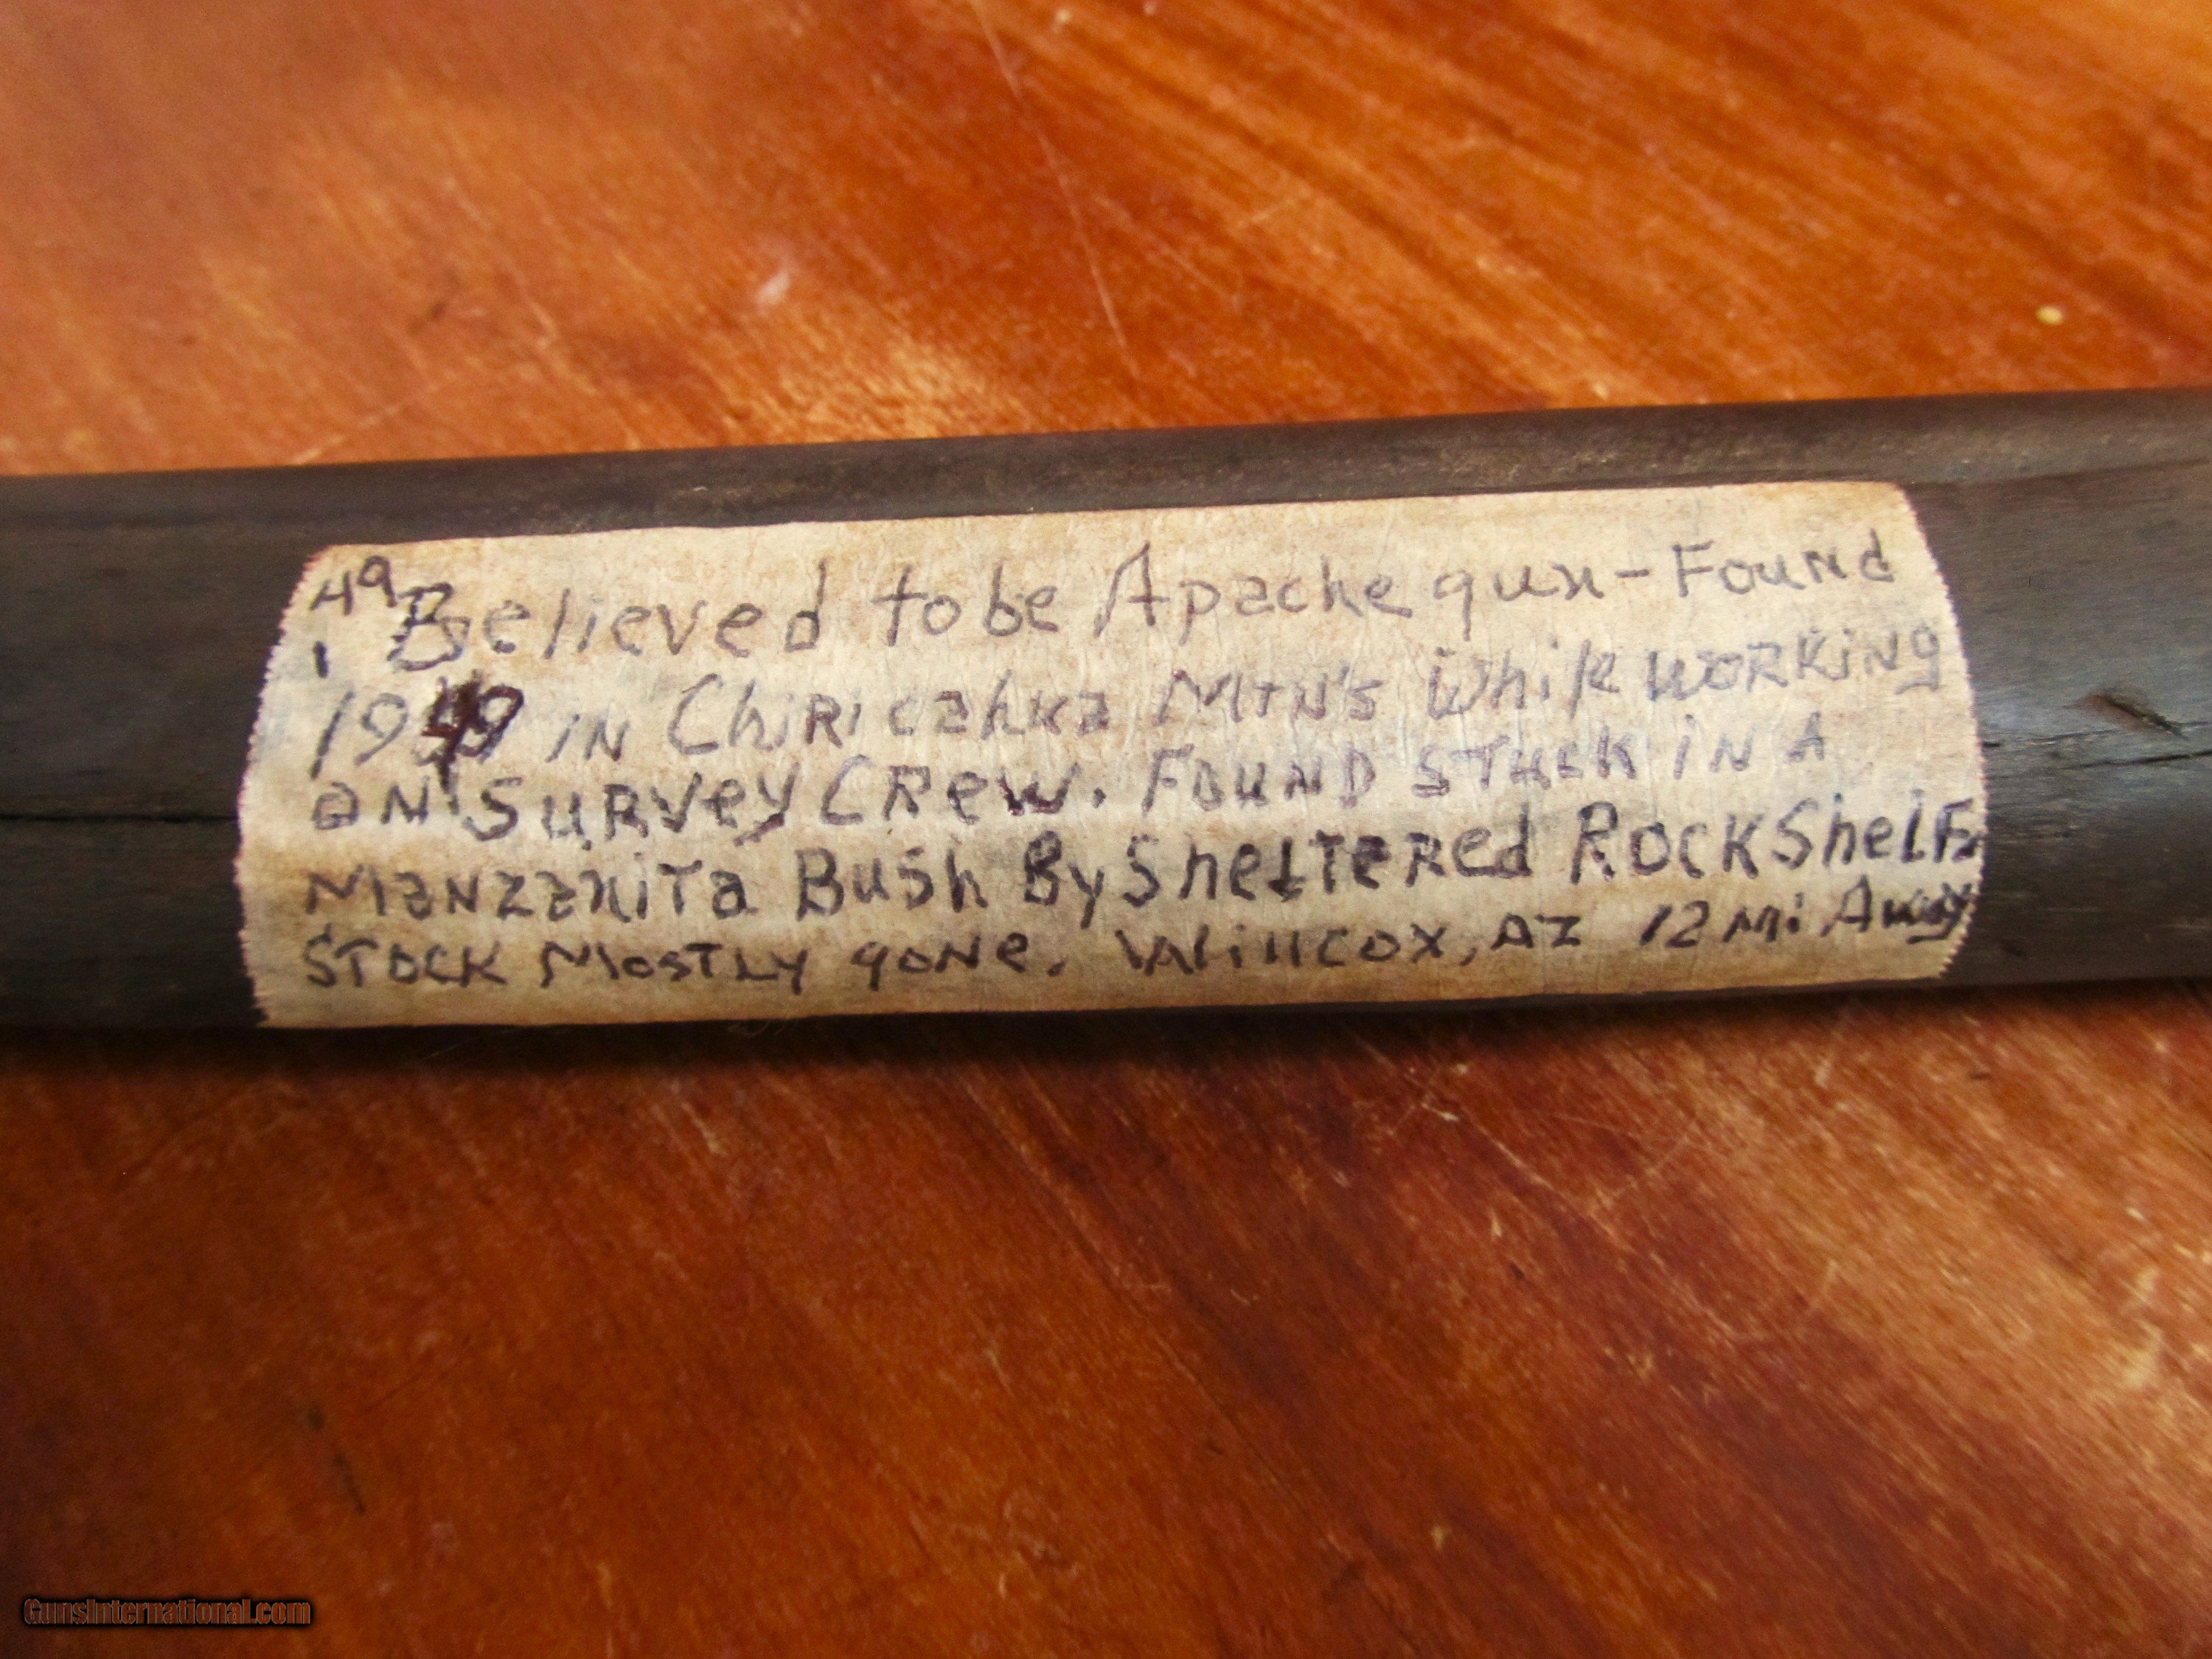 '49 Believed to be Apache gun - Found
1949 in Chiricahua Mtn's While working
on Survey Crew. Found stuck in a
Manzanita Bush By Sheltered Rock Shelf.
Stock Mostly gone. Willcox, AZ 12 mi Away
GunsInternational.com